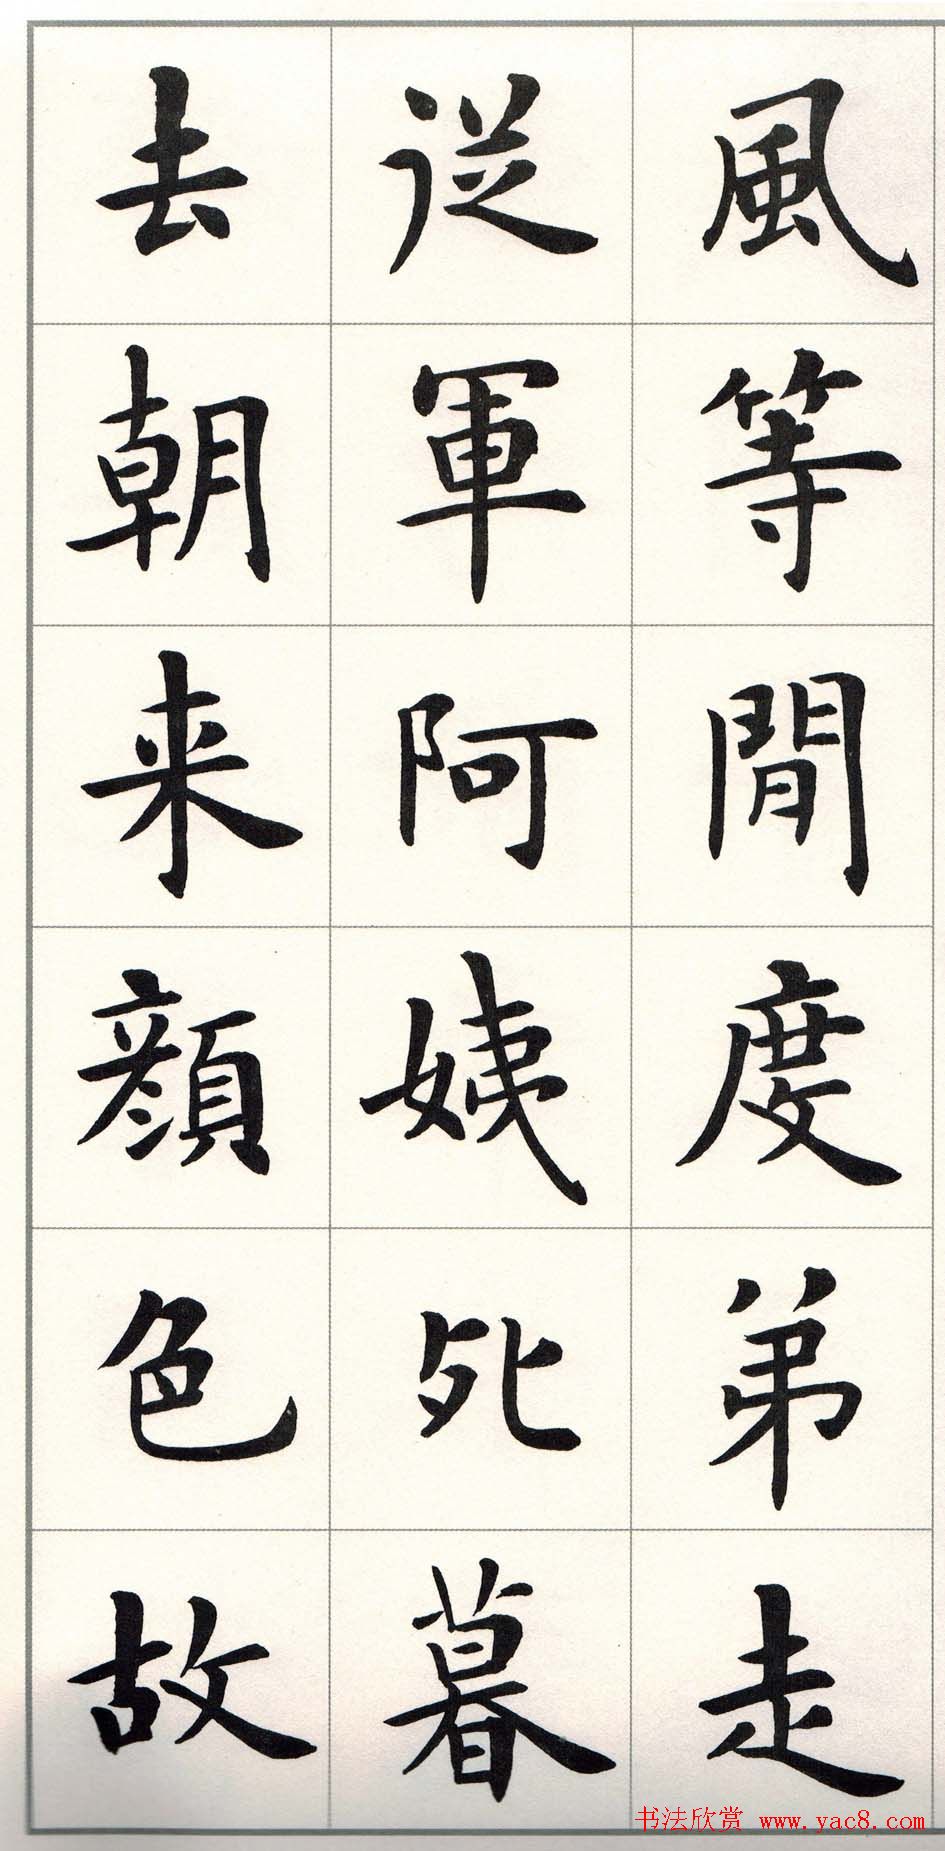 風等閒度弟走
從軍阿姨死暮
去朝来顏色故
书法欣赏 www.yac8.com